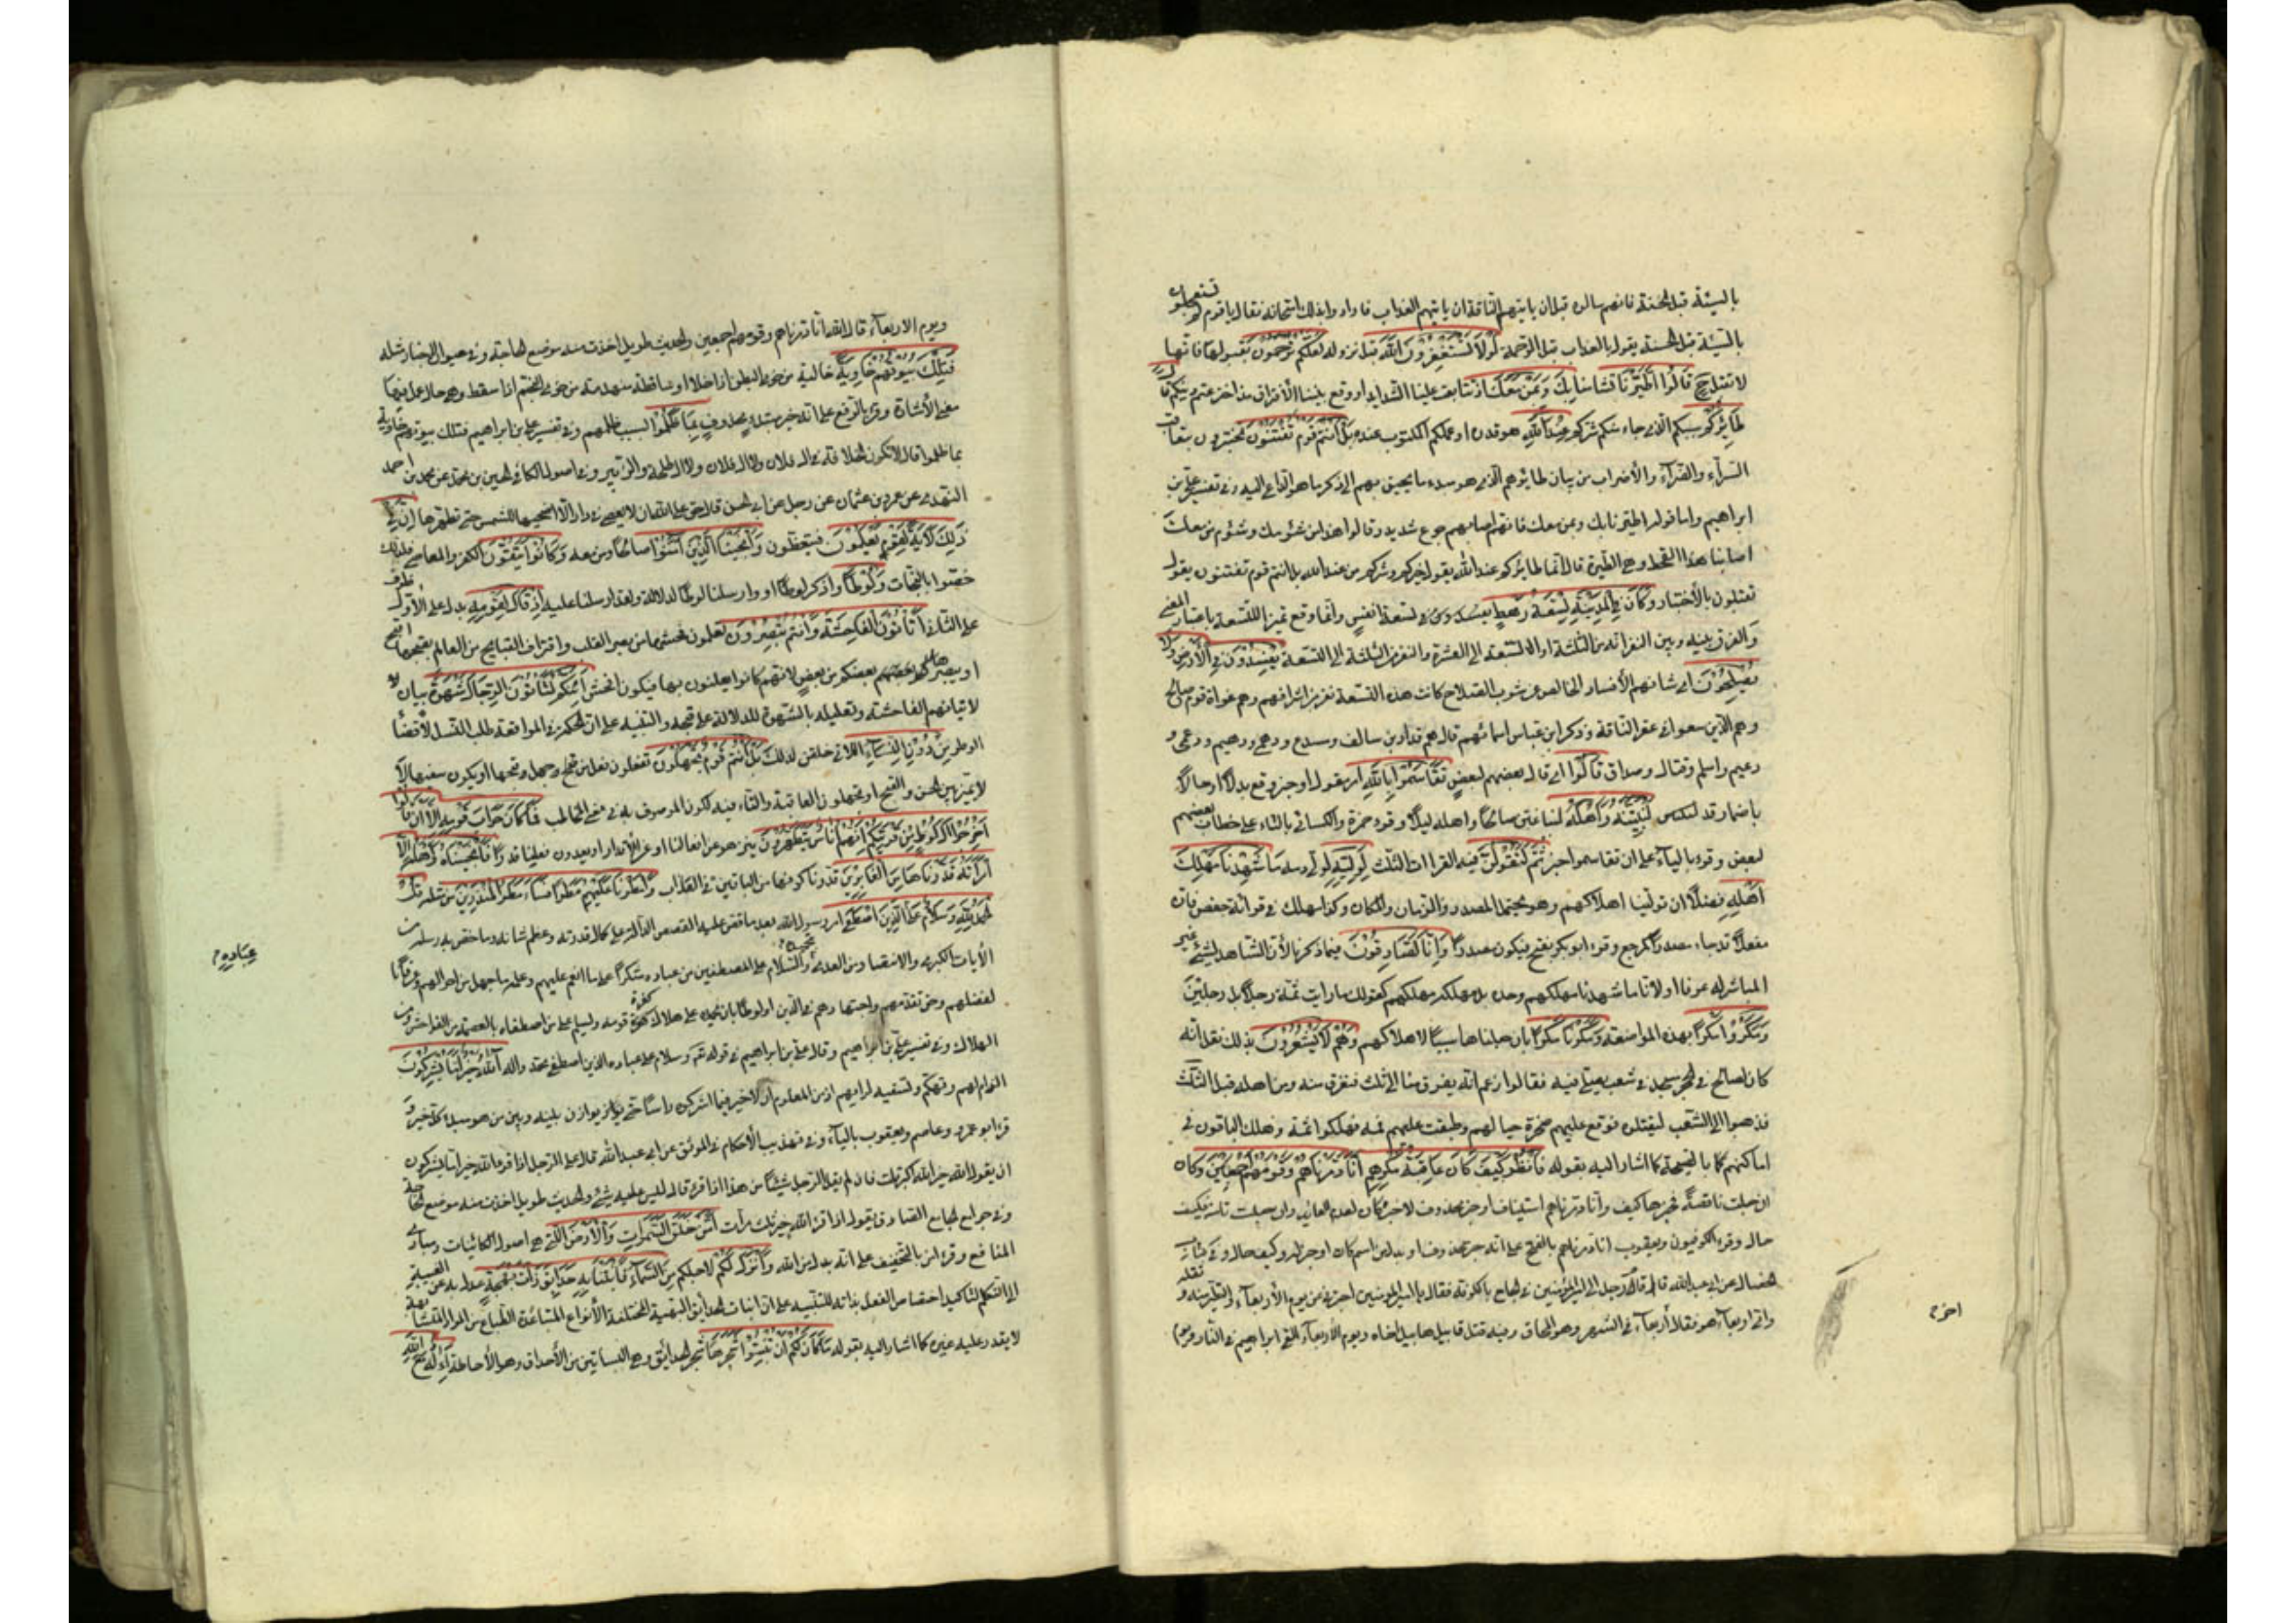 بالسيئة قبل الحسنة فانهم سالوه قبل ان ياتيهم الناقة ان ياتيهم العذاب فارادوا بذلك امتحانه فقال يا قوم لم تستعجلون
بالسيئة قبل الحسنة يقول بالعذاب قبل الرحمة لَوْلَا تَسْتَغْفِرُونَ اللّٰهَ قبل نزوله لَعَلَّكُمْ تُرْحَمُونَ بقبولها فانها
لا تقبل ح قَالُوا اطَّيَّرْنَا تشأمنا بِكَ وَمَنْ مَعَكَ اذ تتابعت علينا الشدايد او وقع بيننا الافتراق منذ اخترعتم دينكم قال
طَائِرُكُمْ سببكم الذي جاء منكم شركم عِنْدَ اللّٰهِ هو قدره او عملكم المكتوب عنده بَلْ أَنْتُمْ قَوْمٌ تُفْتَنُونَ تختبرون بتعاقب
السرآء والضرآء والاضراب من بيان طائرهم الذي هو مبدء ما يحيق بهم الى ذكر ما هو الداعي اليه وفي تفسير علي بن
ابراهيم واما قوله اطيرنا بك وبمن معك فانهم اصابهم جوع شديد وقالوا هذا من شؤمك وشؤم من معك
اصابنا هذا القحط وهي الطيرة قال انما طائركم عند الله يقول خيركم وشركم من عند الله بل انتم قوم تفتنون يقول
تبتلون بالاختبار وَكَانَ فِي الْمَدِينَةِ تِسْعَةُ رَهْطٍ تسعة انفس وانما وقع تميز التسعة باعتبار المعنى
والفرق بينه وبين النفر انه من الثلثة او السبعة الى العشرة والنفر من الثلثة الى التسعة يُفْسِدُونَ فِي الْأَرْضِ وَلَا
يُصْلِحُونَ اي شانهم الافساد الخالص عن شوب الصلاح كانت هذه التسعة نفر من اشرافهم وهم غواة قوم صالح
وهم الذين سعوا في عقر الناقة وذكر ابن عباس اسمائهم قال هم قدار بن سالف ومصدع ودهمي ودهيم ودعمى و
دعيم واسلم وقتال وصداق قَالُوا اي قال بعضهم لبعض تَقَاسَمُوا بِاللّٰهِ امر مقول او خبر وقع بدلا او حالا
باضمار قد لَنُبَيِّتَنَّهُ وَأَهْلَهُ لنباغتن صالحا واهله ليلا وقرء حمزة والكسائي بالتاء على خطاب بعضهم
لبعض وقرء بالياء على ان تقاسموا خبر ثُمَّ لَنَقُولَنَّ فيه القراات الثلث لِوَلِيِّهِ لولي دمه مَا شَهِدْنَا مَهْلِكَ
أَهْلِهِ فضلا ان تولينا اهلاكهم وهو يحتمل المصدر والزمان والمكان وكذا مهلك في قرائة حفص فان
مفعلا قد جاء مصدرا كمرجع وقرء ابو بكر بفتح فيكون مصدرا وَإِنَّا لَصَادِقُونَ فيما ذكرنا لان الشاهد للشيء غير
المباشر له عرفا او لانا ما شهدنا مهلكهم وحده بل مهلكه ومهلكهم كقولك ما رايت ثمة رجلا بل رجلين
وَمَكَرُوا مَكْرًا بهذه المواضعة وَمَكَرْنَا مَكْرًا بان جعلناها سببا لاهلاكهم وَهُمْ لَا يَشْعُرُونَ بذلك نقل انه
كان لصالح في الحجر مسجد في شعب يصلي فيه فقالوا زعم انه يفرق منا الى ثلث فنفرق منه ومن اهله قبل الثلث
فذهبوا الى الشعب ليقتلوه فوقع عليهم صخرة حيالهم وطبقت عليهم ثمه فهلكوا ثمة وهلك الباقون في
اماكنهم كما بالصيحة كما اشار اليه بقوله فَانْظُرْ كَيْفَ كَانَ عَاقِبَةُ مَكْرِهِمْ أَنَّا دَمَّرْنَاهُمْ وَقَوْمَهُمْ أَجْمَعِينَ وكان
ان جعلت ناقصة فخبرها كيف وانا دمرناهم استيناف او خبر محذوف لا خبر كان لعدم العائد وان جعلت تامة فكيف
حال وقرء الكوفيون ويعقوب انا دمرناهم بالفتح على انه خبر محذوف او بدل من اسم كان او خبر له وكيف حال وفي كتاب
الخصال عن ابي عبد الله قال قام رجل الى امير المؤمنين في الجامع بالكوفة فقال يا امير المؤمنين اخبرني عن يوم الاربعآء والتطير منه وثقله
واي اربعآء هو فقال اربعآء في الشهر وهو المحاق وفيه قتل قابيل هابيل اخاه ويوم الاربعآء القي ابراهيم في النار
اخر م
ويوم الاربعآء قال الله انا دمرناهم وقومهم اجمعين والحديث طويل اخذت منه موضع الحاجة وفي عيون الاخبار مثله
فَتِلْكَ بُيُوتُهُمْ خَاوِيَةً خالية من خوى البطن اذا خلا او ساقطة منهدمة من خوى النجم اذا سقط وهي حال عمل فيها
معنى الاشارة وقرء بالرفع على انه خبر مبتدء محذوف بِمَا ظَلَمُوا بسبب ظلمهم وفي تفسير علي بن ابراهيم فتلك بيوتهم خاوية
بما ظلموا قال لا تكون الخلافة في ال فلان ولا ال فلان ولا ال طلحة والزبير وفي اصول الكافي الحسين بن محمد عن محمد بن احمد
النهدي عن عمرو بن عثمان عن رجل عن ابي الحسن قال حق على الله ان لا يعصى في دار الا اضحيها للشمس حتى تطهرها إِنَّ فِي
ذَلِكَ لَآيَةً لِقَوْمٍ يَعْلَمُونَ فيتعظون وَأَنْجَيْنَا الَّذِينَ آمَنُوا صالحا ومن معه وَكَانُوا يَتَّقُونَ الكفر والمعاصي فلذلك
خصوا بالنجاة وَلُوطًا واذكر لوطا او وارسلنا لوطا لدلالة ولقد ارسلنا عليه إِذْ قَالَ لِقَوْمِهِ بدل على الاول ظرف
على الثاني أَتَأْتُونَ الْفَاحِشَةَ وَأَنْتُمْ تُبْصِرُونَ تعلمون فحشها من بصر القلب واقتراف القبايح من العالم بقبحها اقبح
او يبصرها بعضكم من بعض لانهم كانوا يعلنون بها فيكون افحش أَئِنَّكُمْ لَتَأْتُونَ الرِّجَالَ شَهْوَةً بيان لا
لاتيانهم الفاحشة وتعليله بالشهوة للدلالة على قبحه والتنبيه على ان الحكمة في المواقعة طلب النسل لا قضاء
الوطر مِنْ دُونِ النِّسَاءِ اللاتي خلقن لذلك بَلْ أَنْتُمْ قَوْمٌ تَجْهَلُونَ تفعلون فعل من جهل قبحها او يكون سفيها
لا يميز بين الحسن والقبيح او تجهلون العاقبة والتاء فيه لكون الموصوف به في معنى المخاطب فَمَا كَانَ جَوَابَ قَوْمِهِ إِلَّا أَنْ قَالُوا
أَخْرِجُوا آلَ لُوطٍ مِنْ قَرْيَتِكُمْ إِنَّهُمْ أُنَاسٌ يَتَطَهَّرُونَ يتنزهون عن افعالنا او عن الاقذار ويعدون فعلنا قذرا فَأَنْجَيْنَاهُ وَأَهْلَهُ إِلَّا
امْرَأَتَهُ قَدَّرْنَاهَا مِنَ الْغَابِرِينَ قدرنا كونها من الباقين في العذاب وَأَمْطَرْنَا عَلَيْهِمْ مَطَرًا فَسَاءَ مَطَرُ الْمُنْذَرِينَ مر مثله قُلِ
الْحَمْدُ لِلّٰهِ وَسَلَامٌ عَلَى الَّذِينَ اصْطَفَى امر رسول الله بعد ما قص عليه القصص الدالة على كمال قدرته وعظم شانه وما خص به رسله من
الآيات الكبرى والانتصار من العدى بتحميده والسلام على المصطفين من عباده شكرا على ما انعم عليهم وعلمه ما جهل من احوالهم وعرفانا
لفضلهم وحق تقدمهم واجتهادهم في الدين او لوطا بان يحمده على هلاك كفرة قومه ويسلم على من اصطفاه بالعصمة من الفواحش ومن
الهلاك وفي تفسير علي بن ابراهيم وقال علي بن ابراهيم في قوله عز وسلام على عباده الذين اصطفى محمد واله آللّٰهُ خَيْرٌ أَمَّا يُشْرِكُونَ
الزام لهم وتهكم وتسفيه لرايهم اذ من المعلوم ان لا خير فيما اشركوه راسا حتى يوازن بينه وبين من هو مبدء كل خير و
قرء ابو عمرو وعاصم ويعقوب بالياء وفي تهذيب الاحكام في الموثق عن ابي عبد الله قال على الرجل اذا قرء الله خير اما يشركون
ان يقول الله خير الله اكبر قلت فان لم يقل الرجل شيئا من هذا اذا قرء قال ليس عليه شيء والحديث طويل اخذت منه موضع الحاجة
وفي جوامع الجامع الصادق يقول اذا قرء الله خير ثلث مرات أَمَّنْ خَلَقَ السَّمَوَاتِ وَالْأَرْضَ التي هي اصول الكائنات ومبادي
المنافع وقرء امن بالتخفيف على انه بدل من الله وَأَنْزَلَ لَكُمْ لاجلكم مِنَ السَّمَاءِ مَاءً فَأَنْبَتْنَا بِهِ حَدَائِقَ ذَاتَ بَهْجَةٍ عدل به عن الغيبة
الى التكلم لتاكيد اختصاص الفعل بذاته للتنبيه على ان انبات الحدايق البهية المختلفة الانواع المتباعدة الطباع من المواد المتشابهة
لا يقدر عليه غيره كما اشار اليه بقوله مَا كَانَ لَكُمْ أَنْ تُنْبِتُوا شَجَرَهَا شجر الحدايق وهي البساتين من الاحداق وهو الاحاطة أَإِلَهٌ مَعَ اللّٰهِ
عباده م